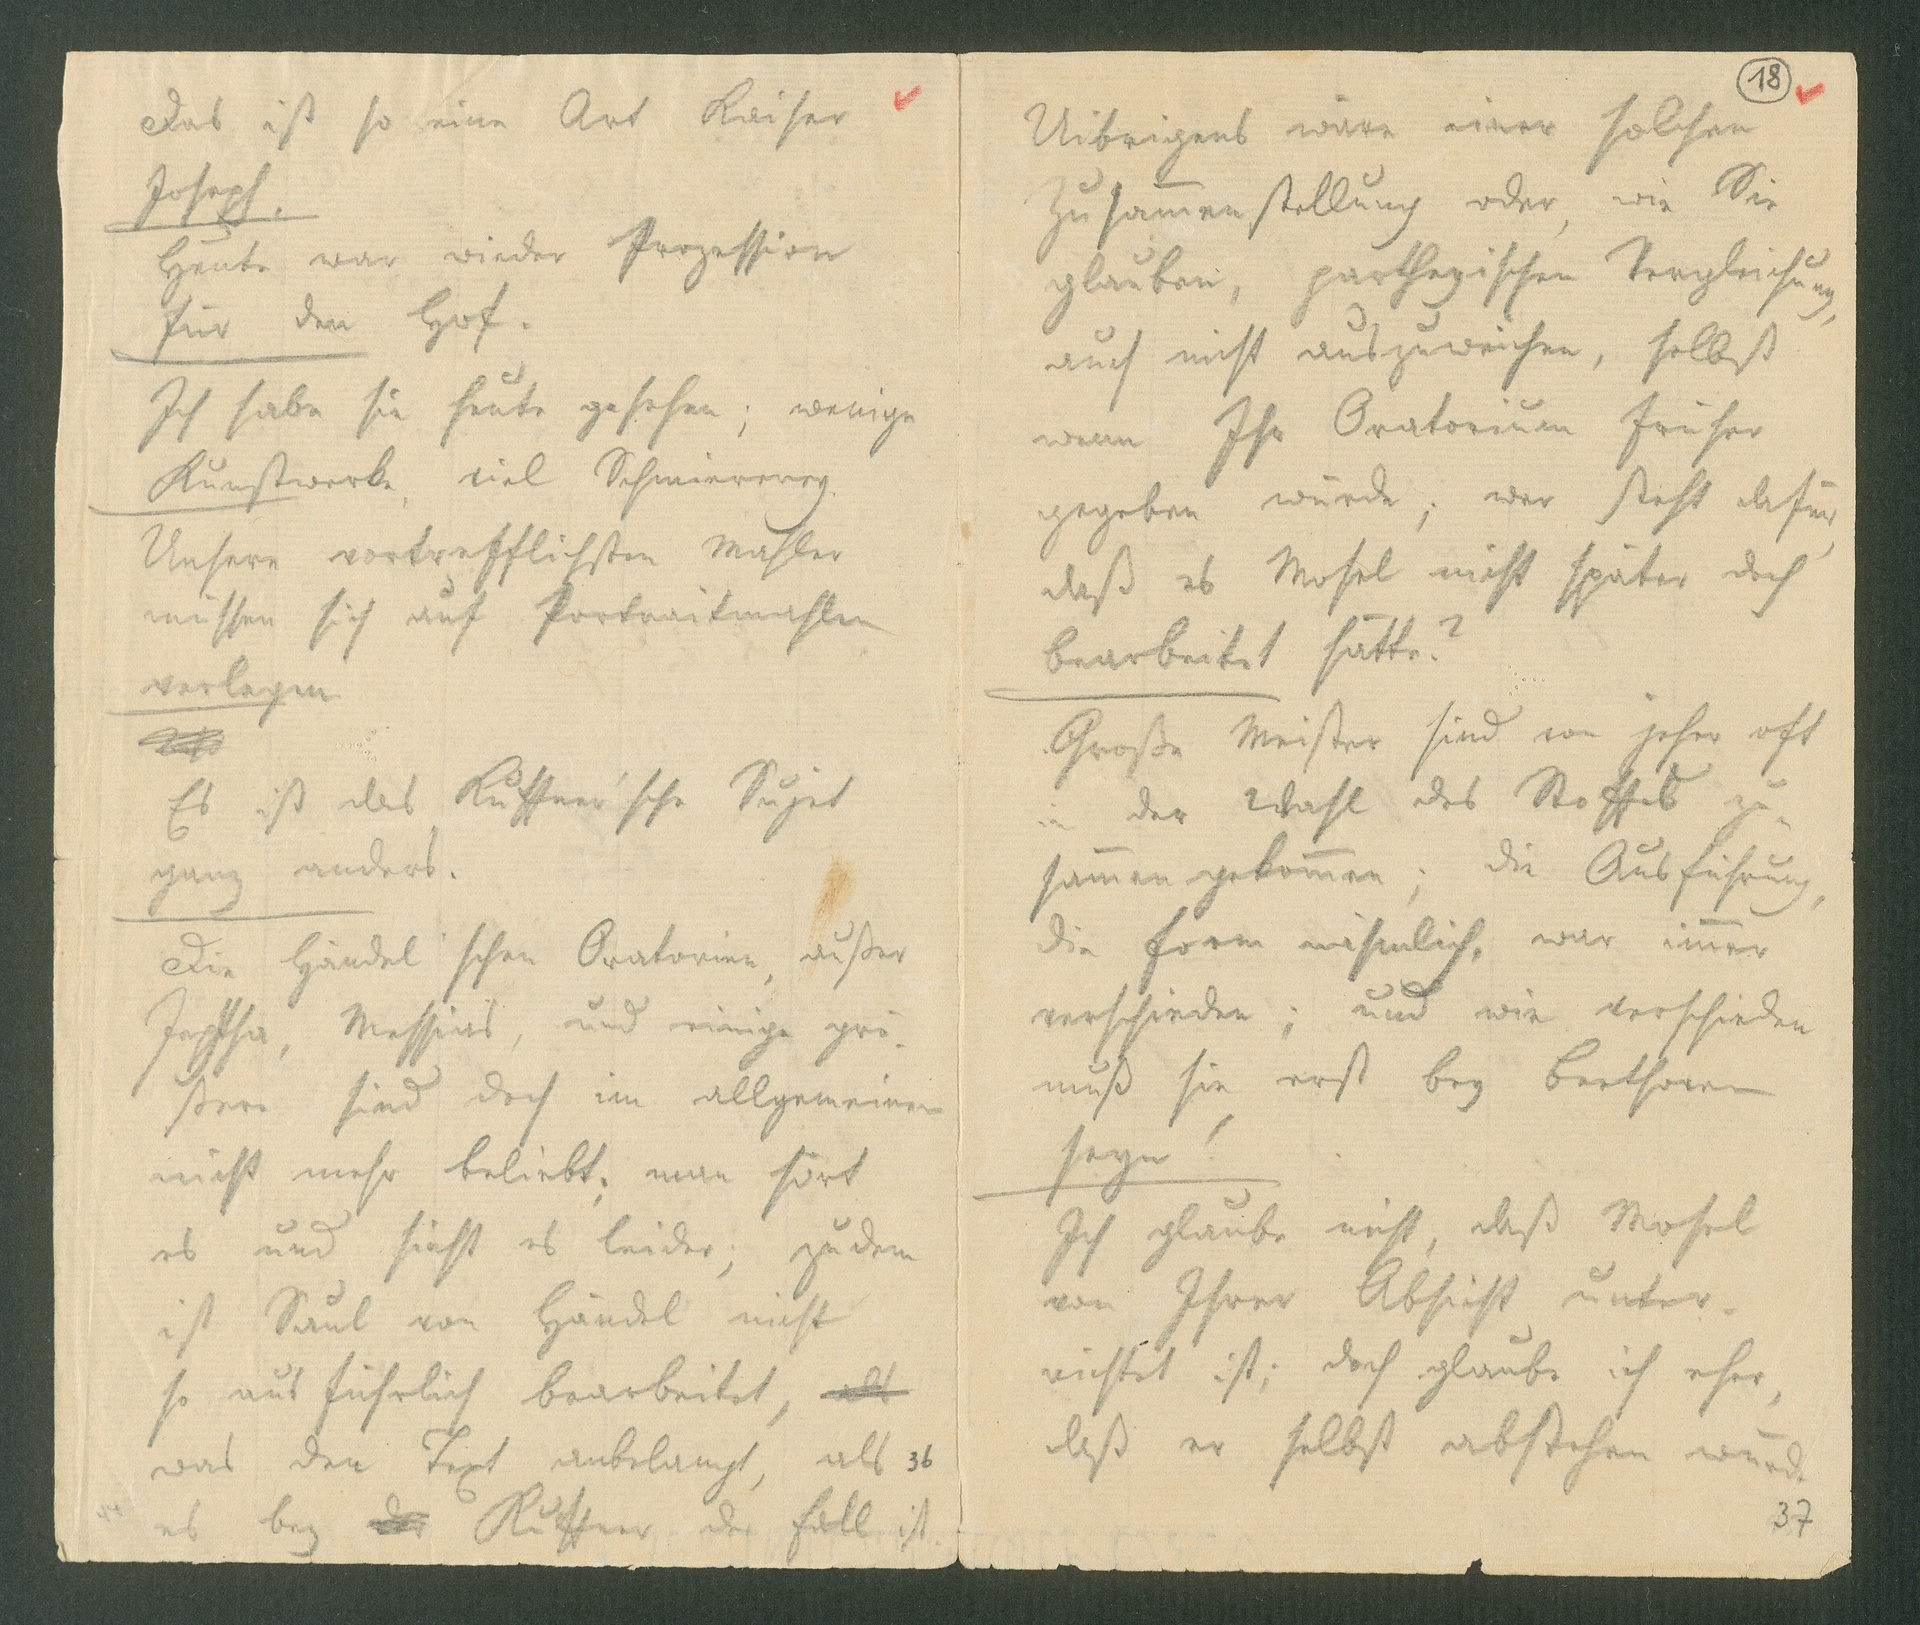 Das ist so eine Art Kaiser
Joseph.
Heute war wieder Prozession
für den Hof.
Ich habe sie heute gesehen; wenige
Kunstwerke, viel Schmiererey.
Unsere vortrefflichsten Mahler
müssen sich auf Portraitmahlen
verlegen
Es ist das Kuffner'sche Sujet
ganz anders.
Die Händel'schen Oratorien, außer
Jephtha, Messias, und einige grö-
ßere sind doch im allgemeinen
nicht mehr beliebt; man hört
es und sieht es leider; zudem
ist Saul von Händel nicht
so ausführlich bearbeitet, als
was den Text anbelangt, als
es bey der Kuffner der Fall ist.
36
18
Uibrigens wäre einer solchen
Zusam̅enstellung oder, wie Sie
glauben, partheyischen Vergleichung,
auch nicht auszuweichen, selbst
wenn Ihr Oratorium früher
gegeben würde; wer steht dafür,
daß es Mosel nicht später doch
bearbeitet hätte?
Große Meister sind von jeher oft
in der Wahl des Stoffes zu-
sam̅engekom̅en; die Ausführung,
die Form nähmlich, war im̅er
verschieden; und wie verschieden
muß sie erst bey Beethoven
seyn!
Ich glaube nicht, daß Mosel
von Ihrer Absicht unter-
richtet ist; doch glaube ich eher,
daß er selbst abstehen würde
37